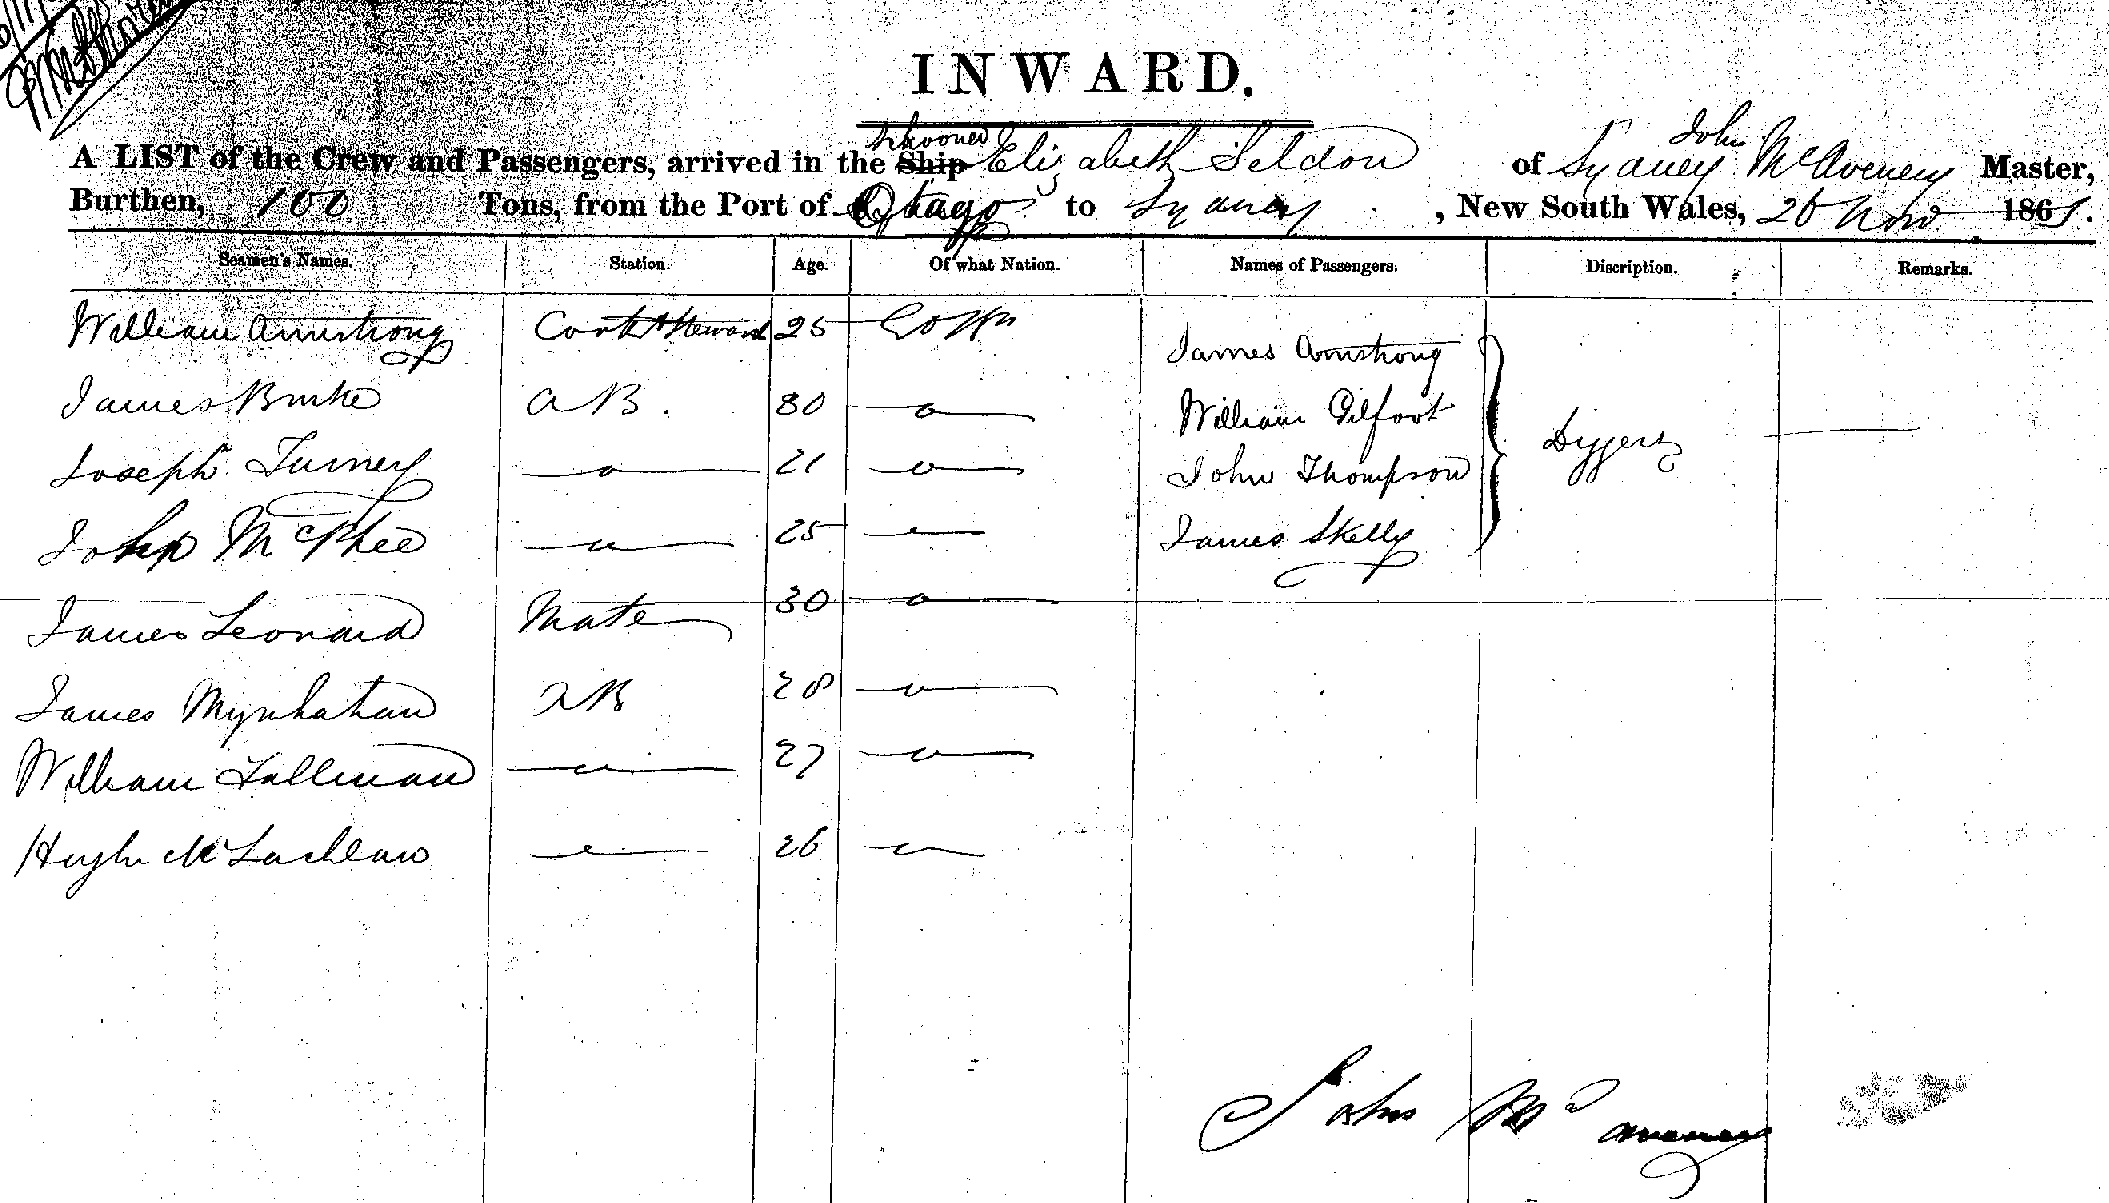 INWARD.
Schooner John
A LIST of the Crew and Passengers, arrived in the Ship Elizabeth Seldon of Sydney McAveney Master,
Burthen, 100 Tons, from the Port of Otago to Sydney, New South Wales, 26 Nov 1861.
Seamen's Names. Station. Age. Of what Nation. Names of Passengers. Discription. Remarks.
William Armstrong Cook & Steward 25
James Armstrong
James Burke AB. 30 William Gilfoot
Diggers
Joseph Turney 21 John Thompson
John McPhee 25 James Skelly
James Leonard Mate 30
James Mynhahan AB 28
William Tallman 27
Hugh McLachlan 26
John McAveney